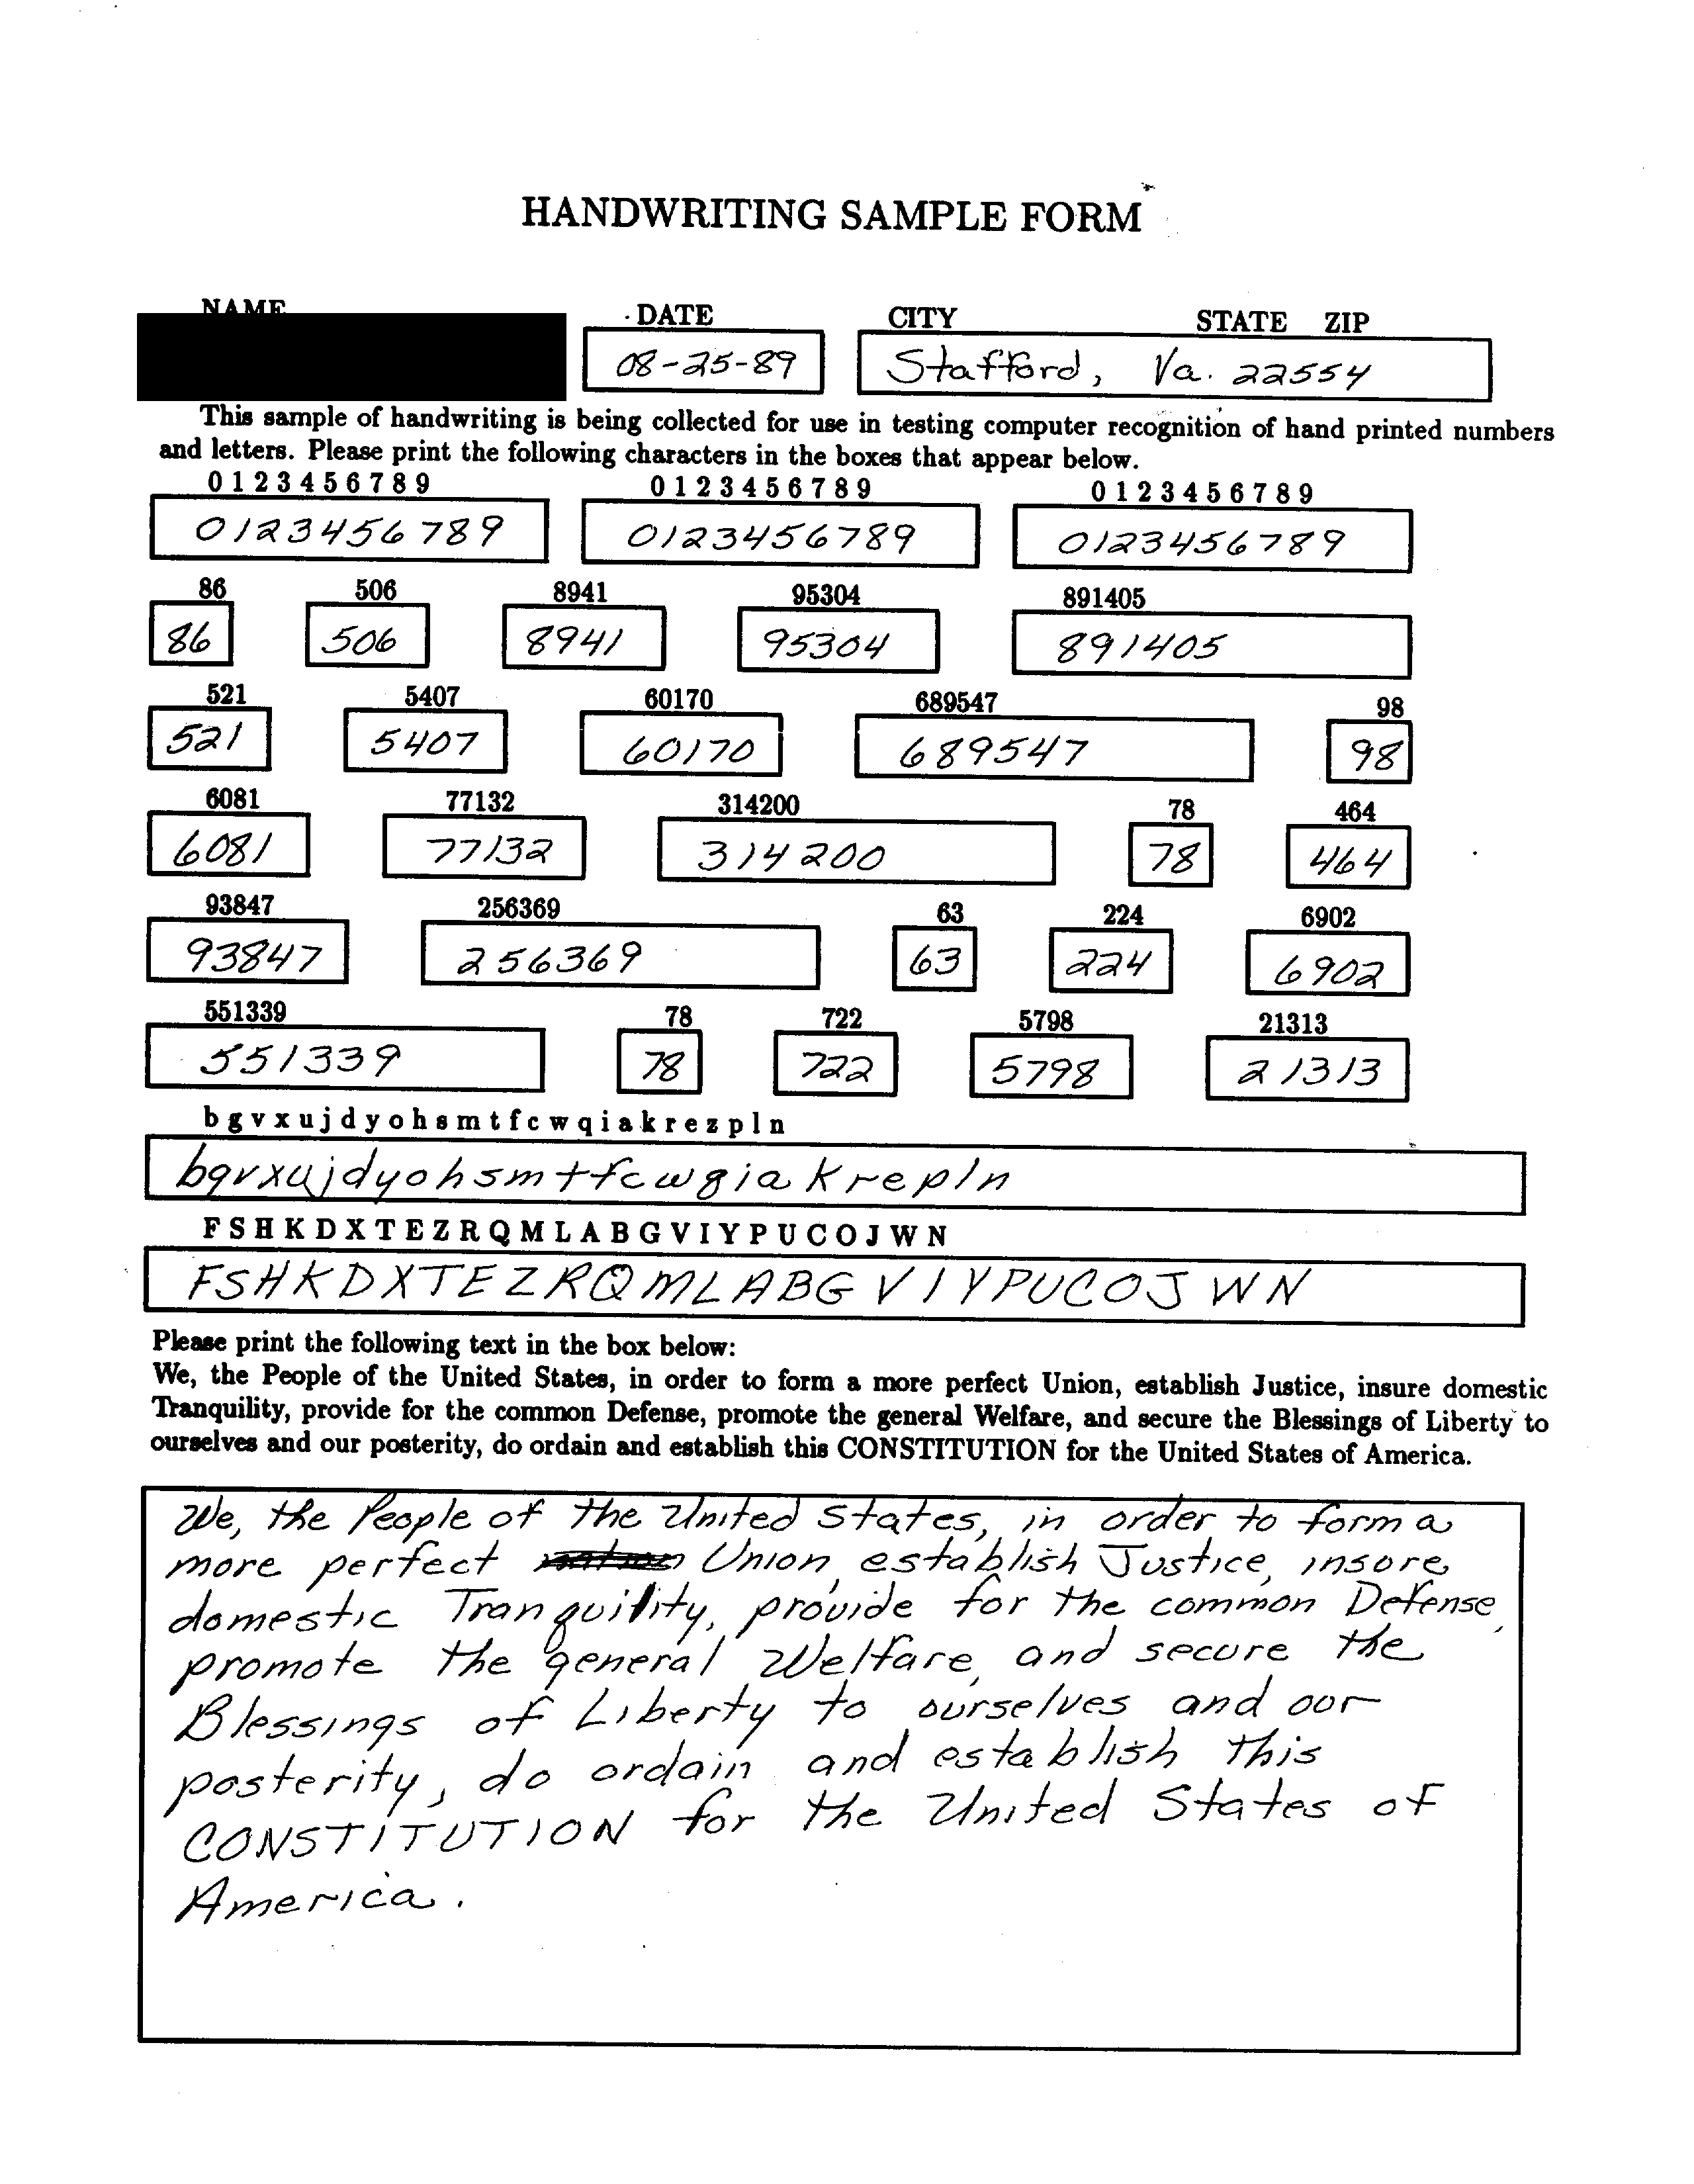 HANDWRITING SAMPLE FORM
NAME DATE CITY STATE ZIP
08-25-89 Stafford, Va. 22554
This sample of handwriting is being collected for use in testing computer recognition of hand printed numbers
and letters. Please print the following characters in the boxes that appear below.
0 1 2 3 4 5 6 7 8 9 0 1 2 3 4 5 6 7 8 9 0 1 2 3 4 5 6 7 8 9
0123456789 0123456789 0123456789
86 506 8941 95304 891405
86 506 8941 95304 891405
521 5407 60170 689547 98
521 5407 60170 689547 98
6081 77132 314200 78 464
6081 77132 314200 78 464
93847 256369 63 224 6902
93847 256369 63 224 6902
551339 78 722 5798 21313
551339 78 722 5798 21313
b g v x u j d y o h s m t f c w q i a k r e z p l n
bgvxujdyohsmtfcwqiakrepln
F S H K D X T E Z R Q M L A B G V I Y P U C O J W N
FSHKDXTEZRQMLABGVIYPUCOJWN
Please print the following text in the box below:
We, the People of the United States, in order to form a more perfect Union, establish Justice, insure domestic
Tranquility, provide for the common Defense, promote the general Welfare, and secure the Blessings of Liberty to
ourselves and our posterity, do ordain and establish this CONSTITUTION for the United States of America.
We, the People of the United States, in order to form a
more perfect Union, establish Justice, insure
domestic Tranquility, provide for the common Defense,
promote the general Welfare, and secure the
Blessings of Liberty to ourselves and our
posterity, do ordain and establish this
CONSTITUTION for the United States of
America.